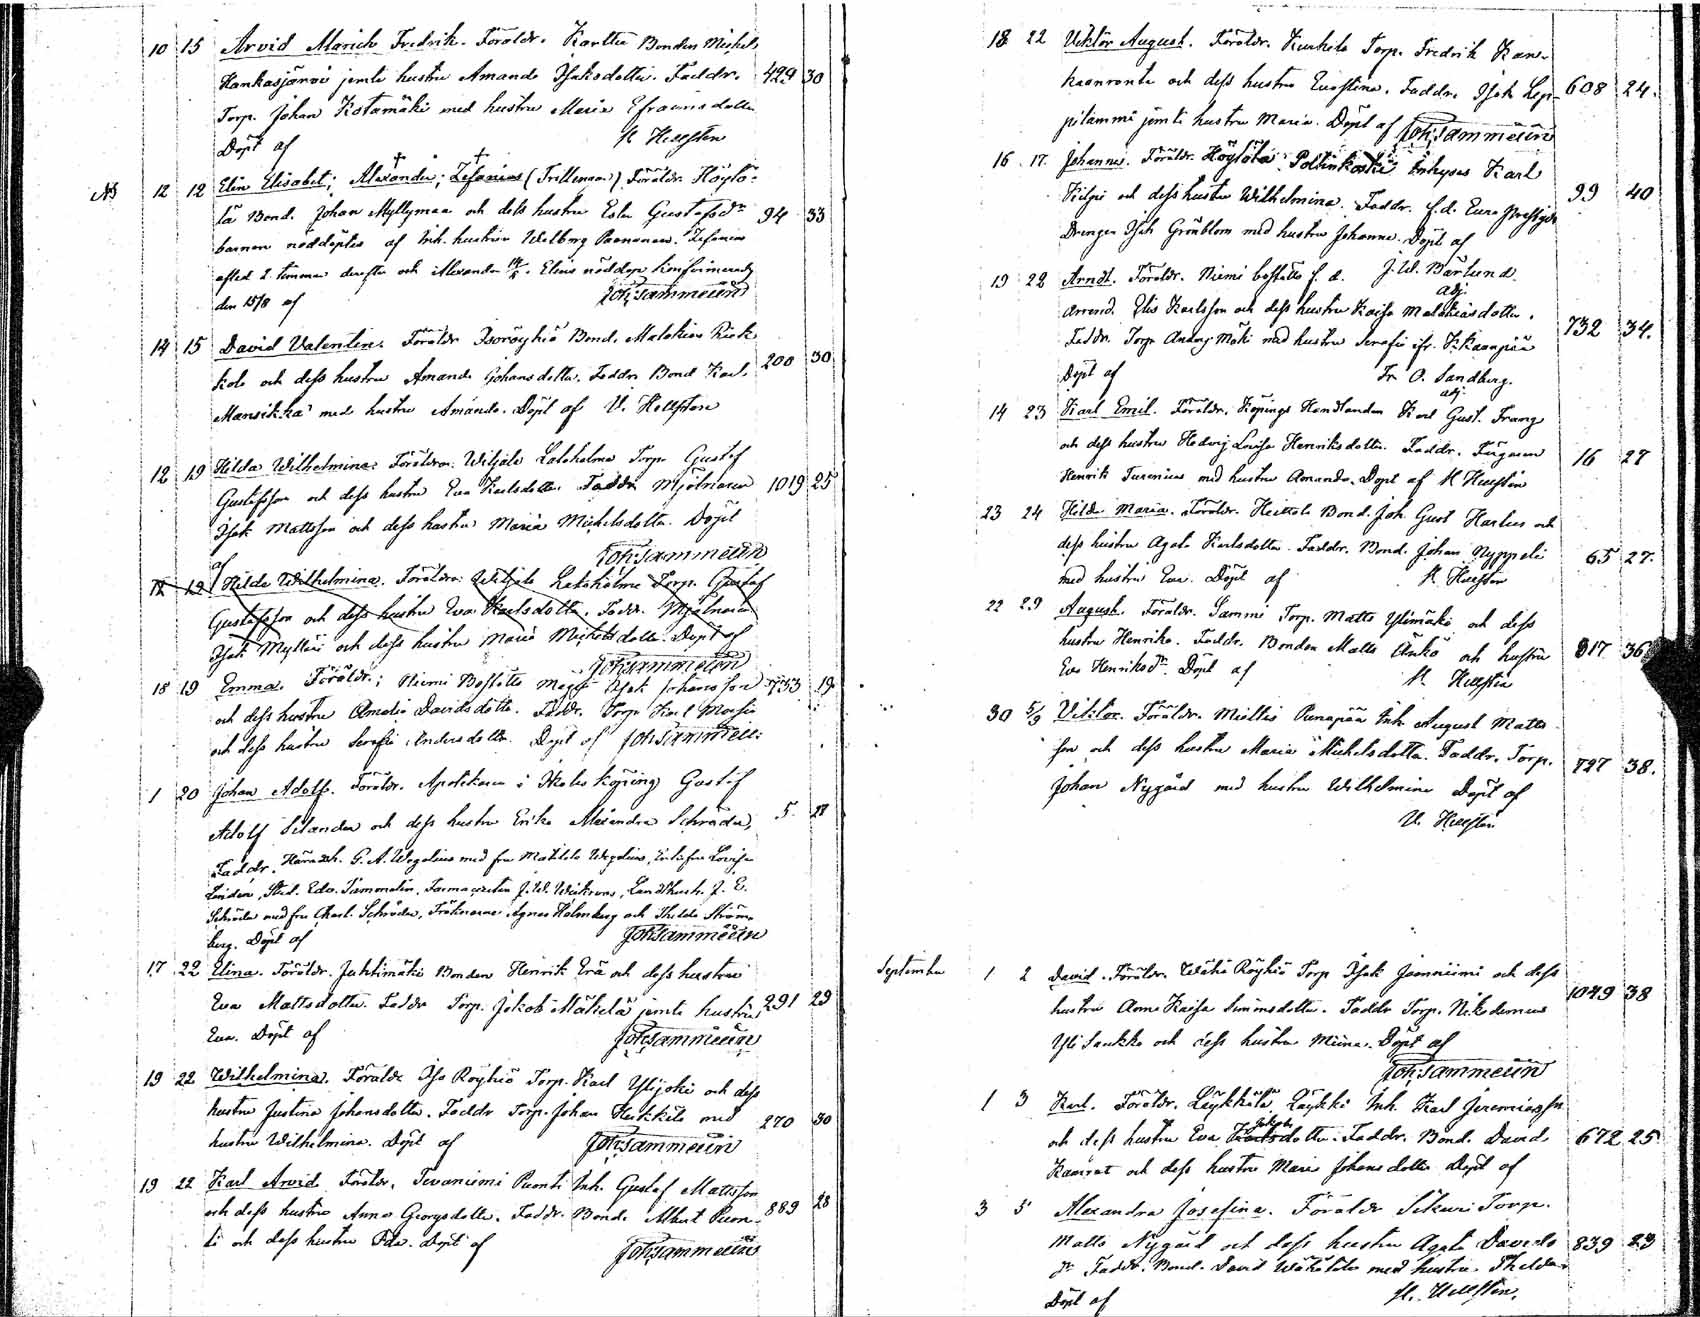 10 15 Arvid Marich Fredrik. Föräldr. Karttu Bonden Michel
Hankasjärvi jemte hustru Amanda Isaksdotter. Faddr. 429 30
Torp. Johan Kotamäki med hustru Maria Efraimsdotter
Döpt af K Hellsten
NB 12 12 Elin Elisabet; Alexander; Zefanias (Trillingar) Föräldr. Höytö-
lä Bond. Johan Myllymaa och dess hustru Eva Gustafsdr 94 33
barnen nöddöptes af Inh. hustrun Welborg Paananen. Zefanias
afled 2 timmar derefter och Alexander 14/8. Elins nöddop konfirmerad
den 15/8 af Joh:Sammelin
14 15 David Valentin. Föräldr Isoröyhiö Bond. Malakias Riek
kola och dess hustru Amanda Johansdotter. Faddr. Bond Karl 200 30
Mansikka med hustru Amanda. Döpt af V. Hellsten
12 19 Hilda Wilhelmina. Föräldrar: Witjala Laksholma Torp. Gustaf
Gustafsson och dess hustru Eva Karlsdotter. Faddr. Mjölnaren 1019 25
Isak Mattsson och dess hustru Maria Michelsdotter. Döpt
af Joh:Sammelin
12 19 Hilda Wilhelmina. Föräldrar: Witjala Laksholma Torp. Gustaf
Gustafsson och dess hustru Eva Karlsdotter. Faddr. Mjölnaren
Isak Mylläri och dess hustru Maria Michelsdotter. Döpt af
Joh:Sammelin
18 19 Emma. Föräldr.; Niemi Bostället Isak Johansson 733 19
och dess hustru Amalia Davidsdotter. Faddr. Torp. Karl
och dess hustru Serafia Andersdotter. Döpt af Joh:Sammelin
1 20 Johan Adolf. Föräldr. Apotekaren i Ikalis Köping Gustaf
Adolf Selander och dess hustru Erika Alexandra Schröder, 5
Faddr. Häradsh. G. A. Wegelius med fru Matilda Wegelius, Enkefru Lovisa
Linden, Stud. Edv. Tamonelin, Farmaceuten J. W. Landtbruk. J. E.
Schröder med fru Charl. Schröder, Fröknarna Agnes Holmberg och Thilda Ström-
berg. Döpt af Joh:Sammelin
17 22 Elina. Föräldr. Juhtimäki Bonden Henrik Erä och dess hustru
Eva Mattsdotter. Faddr Torp. Jakob Mäkelä jemte hustru 291 29
Eva. Döpt af Joh:Sammelin
19 22 Wilhelmina. Föräldr Iso Röyhiö Torp. Karl Ylijoki och dess
hustru Justina Johansdotter. Faddr Torp. Johan Heikkilä med 270 30
hustru Wilhelmina. Döpt af Joh:Sammelin
19 22 Karl Arvid Föräldr. Tevaniemi Puonti Inh. Gustaf Mattsson
och dess hustru Anna Georgsdotter. Faddr. Bond. Albert Puon- 889 28
ti och dess hustru Ida. Döpt af Joh:Sammelin
18 22 Viktor August. Föräldr. Kurkela Torp. Fredrik Kan-
kaanranta och dess hustru Eufstina. Faddr. Isak Lep- 608 24.
pilammi jemte hustru Maria. Döpt af Joh:Sammelin
16 17. Johannes. Föräldr. Höytölä Poltinkoski Inhyses Karl
Kilpi och dess hustru Wilhelmina. Faddr. f.d. 99 40
Drengen Isak Grönblom med hustru Johanna. Döpt af
J. W. Bärlund
adj.
19 22 Arndt. Föräldr. Niemi boställe f. d.
Arrend. Elis Karlsson och dess hustru Kaisa Malakiasdotter. 732 34.
Faddr. Torp Mäki med hustru Serafia ifr. Kkaanpää
Döpt af Fr. O. Sandberg.
adj.
14 23 Karl Emil. Föräldr. Köpings Handlanden Karl Gust. Frang
och dess hustru Hedvig Lovisa Henriksdotter. Faddr. Färgaren 16 27
Henrik Turenius med hustru Amanda. Döpt af K Hellsten
23 24 Hilda Maria. Föräldr. Heittola Bond. Joh. Gust Harhus och
dess hustru Agata Karlsdotter. Faddr. Bond. Johan Nyppeli 65 27.
med hustru Eva. Döpt af K. Hellsten
22 29 August. Föräldr. Sammi Torp. Matts Ylimäki och dess
hustru Henrika. Faddr. Bonden Matts Änkö och hustru 917 36
Eva Henriksdr. Döpt af K. Hellsten
30 5/9 Viktor. Föräldr. Miettis Punapää Inh. August Matts-
son och dess hustru Maria Michelsdotter. Faddr. Torp. 727 38.
Johan Nygård med hustru Wilhelmina Döpt af
V. Hellsten
September 1 2 David. Föräldr. Wäha Röyhiö Torp Isak Janniemi och dess
hustru Anna Kaisa Simonsdotter. Faddr Torp. Nikodemus 1049 38
Yli Sankko och dess hustru Miina. Döpt af
Joh:Sammelin
1 3 Karl. Föräldr. Läykkälä Läykki Inh. Karl Jeremiasson
och dess hustru Eva Karlsdotter. Faddr. Bond. David 672 25
Kaarat och dess hustru Maria Johansdotter Döpt af
3 5 Alexandra Josefina. Föräldr Sikuri Torp.
Matts Nygård och dess hustru Agata Davids 839 23
dr. Faddr. Bond. David Wähätalo med hustru Thilda.
Döpt af K. Hellsten.